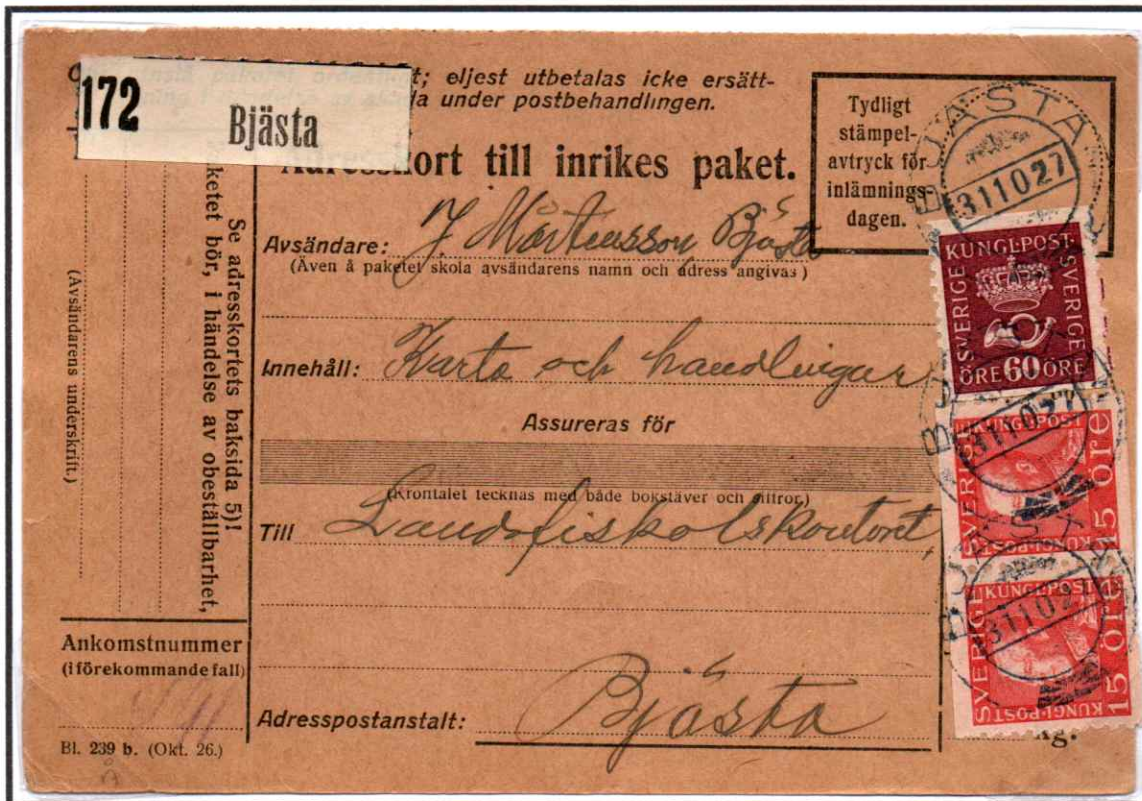 172 Bjästa
t; eljest utbetalas icke ersätt-
a under postbehandlingen.
Adresskort till inrikes paket.
Tydligt
stämpel-
avtryck för
inlämnings-
dagen.
BJÄSTA
311027
Avsändare: J Mårtensson, Bjästa
(Även å paketet skola avsändarens namn och adress angivas)
Innehåll: Karta och handlingar
Assureras för
(Krontalet tecknas med både bokstäver och siffror.)
Till Landsfiskalskontoret
Adresspostanstalt: Bjästa
ketet bör, i händelse av obeställbarhet,
Se adresskortets baksida 5)!
(Avsändarens underskrift.)
Ankomstnummer
(i förekommande fall)
Bl. 239 b. (Okt. 26.)
KUNGL. POST
SVERIGE
SVERIGE
ÖRE 60 ÖRE
BJÄSTA
311027
KUNGL. POST
SVERIGE
15 ÖRE
KUNGL. POST
BJÄSTA
31102
KUNGL. POST
SVERIGE
15 ÖRE
KUNGL. POST